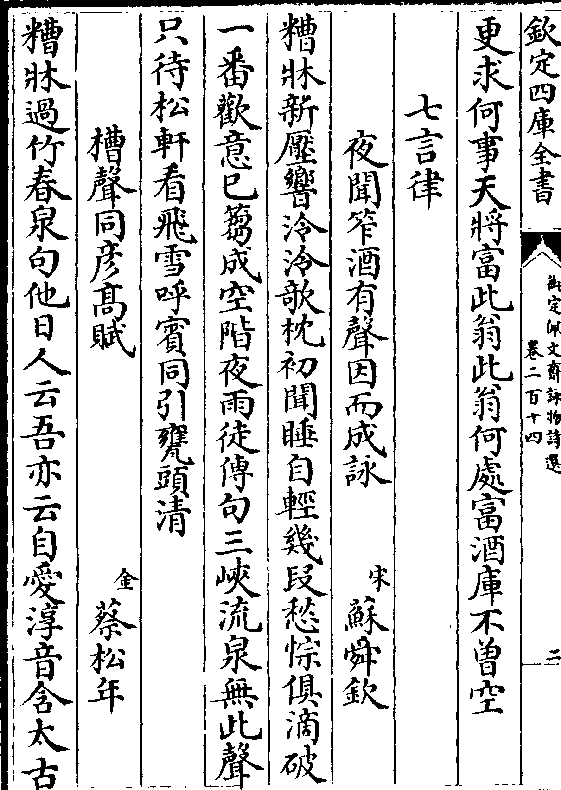 欽定四庫全書
御定佩文齋詠物詩選
卷二百十四
二
更求何事天將富此翁此翁何處富酒庫不曾空
七言律
夜聞笮酒有聲因而成詠
宋
蘇舜欽
糟牀新壓響泠泠欹枕初聞睡自輕幾段愁悰俱滴破
一番歡意已蒭成空階夜雨徒傳句三峽流泉無此聲
只待松軒看飛雪呼賓同引甕頭清
槽聲同彦髙賦
金
蔡松年
糟牀過竹春泉句他日人云吾亦云自愛淳音含太古